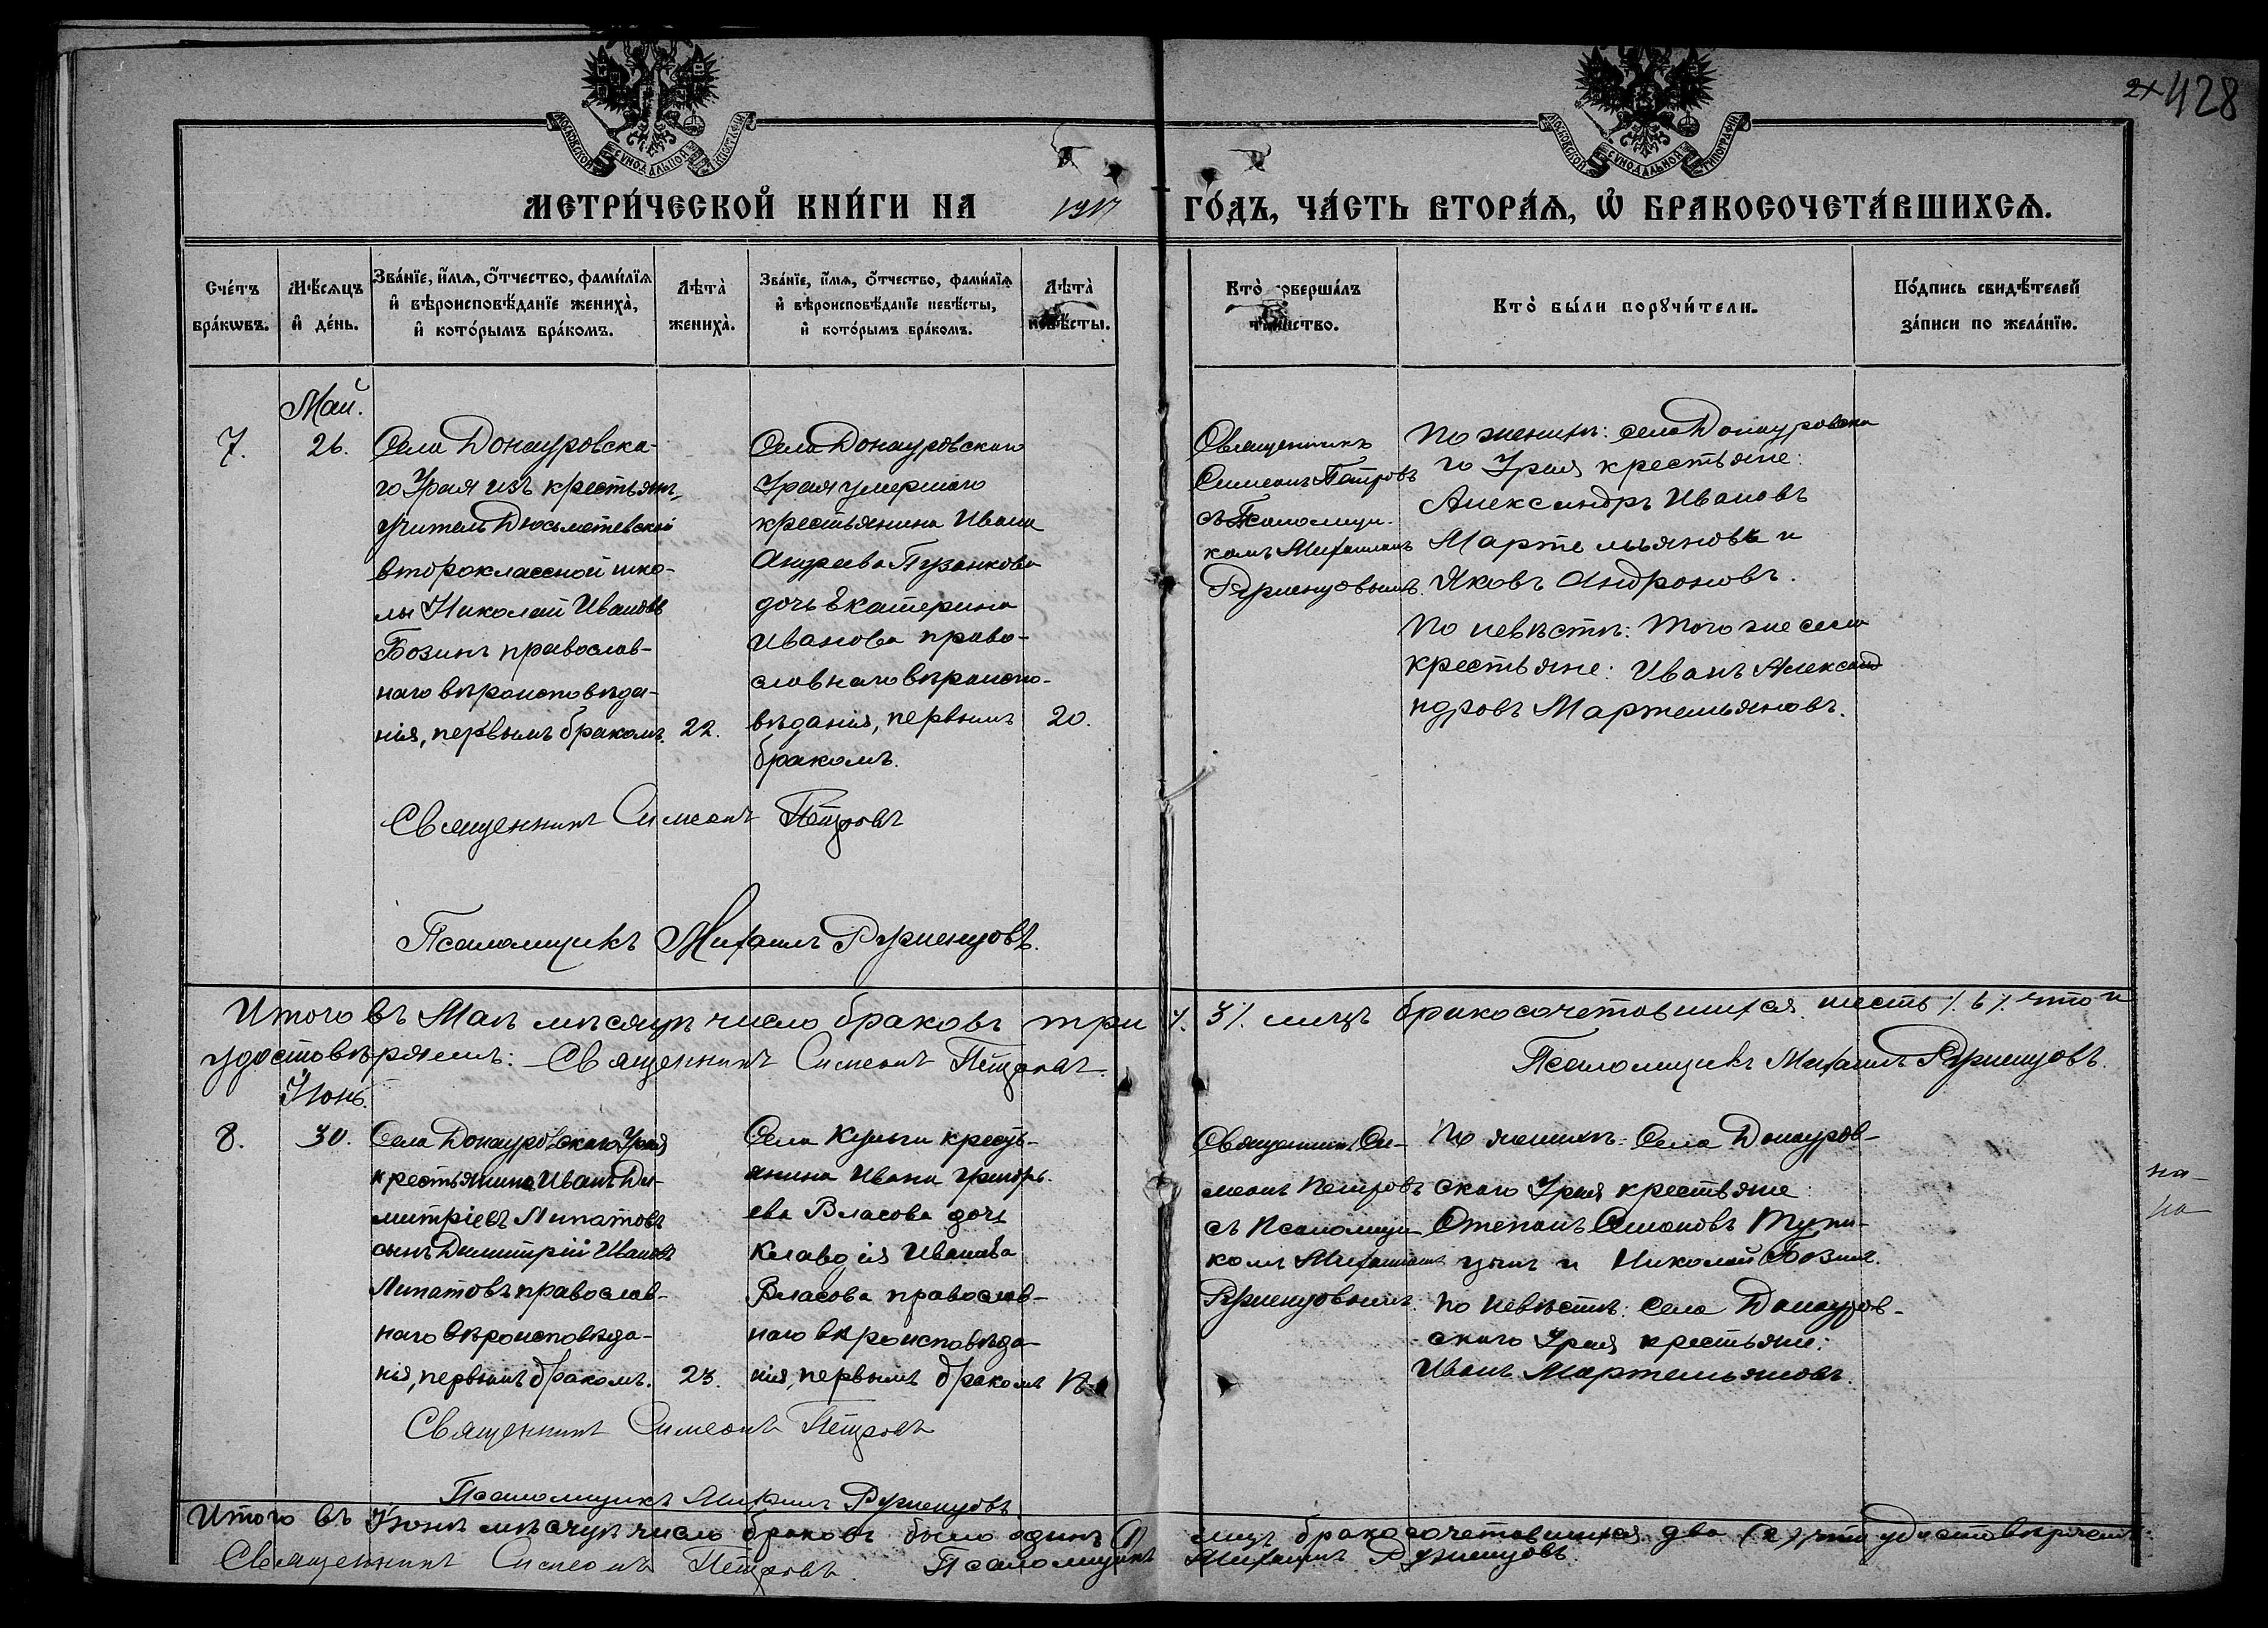 428
МОСКОВСКОЙ СѴНОДАЛЬНОЙ ТИПОГРАФІИ
МОСКОВСКОЙ СѴНОДАЛЬНОЙ ТИПОГРАФІИ
МЕТРИ́ЧЕСКОЙ КНИ́ГИ НА 1917 ГО́ДЪ, ЧА́СТЬ ВТОРА́Ѧ, Ѡ҆ БРАКОСОЧЕТА́ВШИХСѦ.
Сче́тъ
бра́кѡвъ.
Мѣ́сѧцъ
и҆ де́нь.
Зва́нїе, и҆́мѧ, ѻ҆́тчество, фами́лїѧ
и҆ вѣроисповѣ́данїе жениха̀,
и҆ кото́рымъ бра́комъ.
Лѣта̀
жениха̀.
Зва́нїе, и҆́мѧ, ѻ҆́тчество, фами́лїѧ
и҆ вѣроисповѣ́данїе невѣ́сты,
и҆ кото́рымъ бра́комъ.
Лѣта̀
невѣ́сты.
Кто̀ соверша́лъ
таинство.
Кто̀ бы́ли порꙋчи́тели.
По́дпись свидѣ́телей
за́писи по жела́нїю.
Май.
7.
26.
Села Донауровска-
го Урая изъ крестьянъ,
учитель Дюсьметевской
второклассной шко-
лы Николай Ивановъ
Бозинъ православ-
наго вѣроисповѣда-
нія, первымъ бракомъ.
22.
Села Донауровскаго
Урая умершаго
крестьянина Ивана
Андреева Пузанкова
дочь Екатерина
Иванова право-
славнаго вѣроиспо-
вѣданія, первымъ
бракомъ.
20.
Священникъ
Симеонъ Петровъ
съ Псаломщи-
комъ Михаиломъ
Румянцовымъ.
По женихѣ: села Донауровска
го Урая крестьяне:
Александръ Ивановъ
Мартемьяновъ и
Яковъ Андроновъ.
По невѣстѣ: того же села
крестьяне: Иванъ Александ
ндровъ Мартемьяновъ.
Священникъ Симеонъ Петровъ
Псаломщикъ Михаилъ Румянцовъ.
Итого въ Маѣ мѣсяцѣ число браковъ три /. 3/. лицъ бракосочетавшихся шесть /. 6 /. что и
удостовѣряемъ: Священникъ Симеонъ Петровъ. Псаломщикъ Михаилъ Румянцовъ.
Іюнь.
8.
30.
Села Донауровскаго Урая
крестьянина Ивана Ди-
митріевъ Липатовъ
сынъ Димитрій Ивановъ
Липатовъ православ-
наго вѣроисповѣда-
нія, первымъ бракомъ.
23.
Села крестъ-
янина Ивана Григорь-
ева Власова дочь
Клавдія Иванова
Власова православ-
наго вѣроисповѣда-
нія, первымъ бракомъ
Священникъ Си-
меонъ Петровъ
съ Псаломщи
комъ Михаиломъ
Румянцовымъ.
По женихѣ: Села Донауров-
скаго Урая крестьяне:
Степанъ Тупи-
цынъ и Николай Бозинъ.
По невѣстѣ: Села Донауров-
скаго Урая крестьяне:
Иванъ Мартемьяновъ.
на-
на
Священникъ Симеонъ Петровъ
Псаломщикъ Михаилъ Румянцовъ
Итого въ Іюнѣ мѣсяцѣ число браковъ было одинъ (1) лицъ бракосочетавшихся два (2) что удостовѣряемъ:
Священникъ Симеонъ Петровъ. Псаломщикъ Михаилъ Румянцовъ.